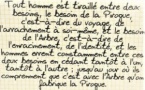 Tout homme est tiraillé entre deux
besoins, le besoin de la Pirogue,
c'est-à-dire du voyage, de
l'arrachement à soi-même, et le besoin
de l'Arbre, c'est-à-dire de
l'enracinement, de l'identité, et les
hommes errent constamment entre ces
deux besoins en cédant tantôt à l'un,
tantôt à l'autre ; jusqu'au jour où ils
comprennent que c'est avec l'Arbre qu'on
fabrique la Pirogue.